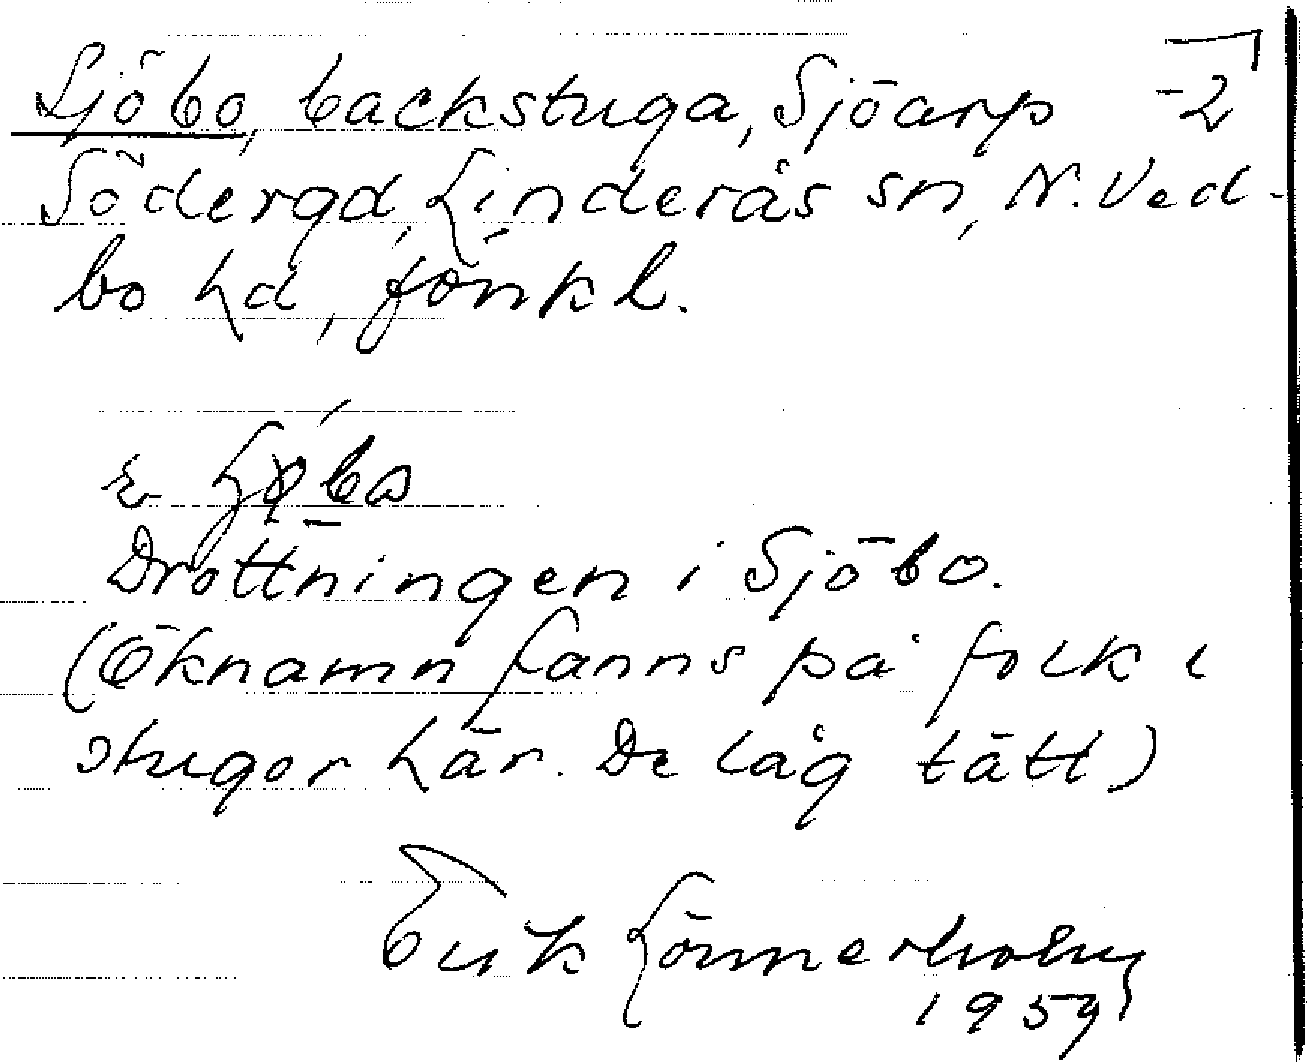 Sjöbo, backstuga, Sjöarp -2
Södergd, Linderås sn, N. Ved-
bo hd, Jönk l.
Drottningen i Sjöbo.
(Öknamn fanns på folk i
stugor här. De låg tätt)
Erik Lönnerholm
1959